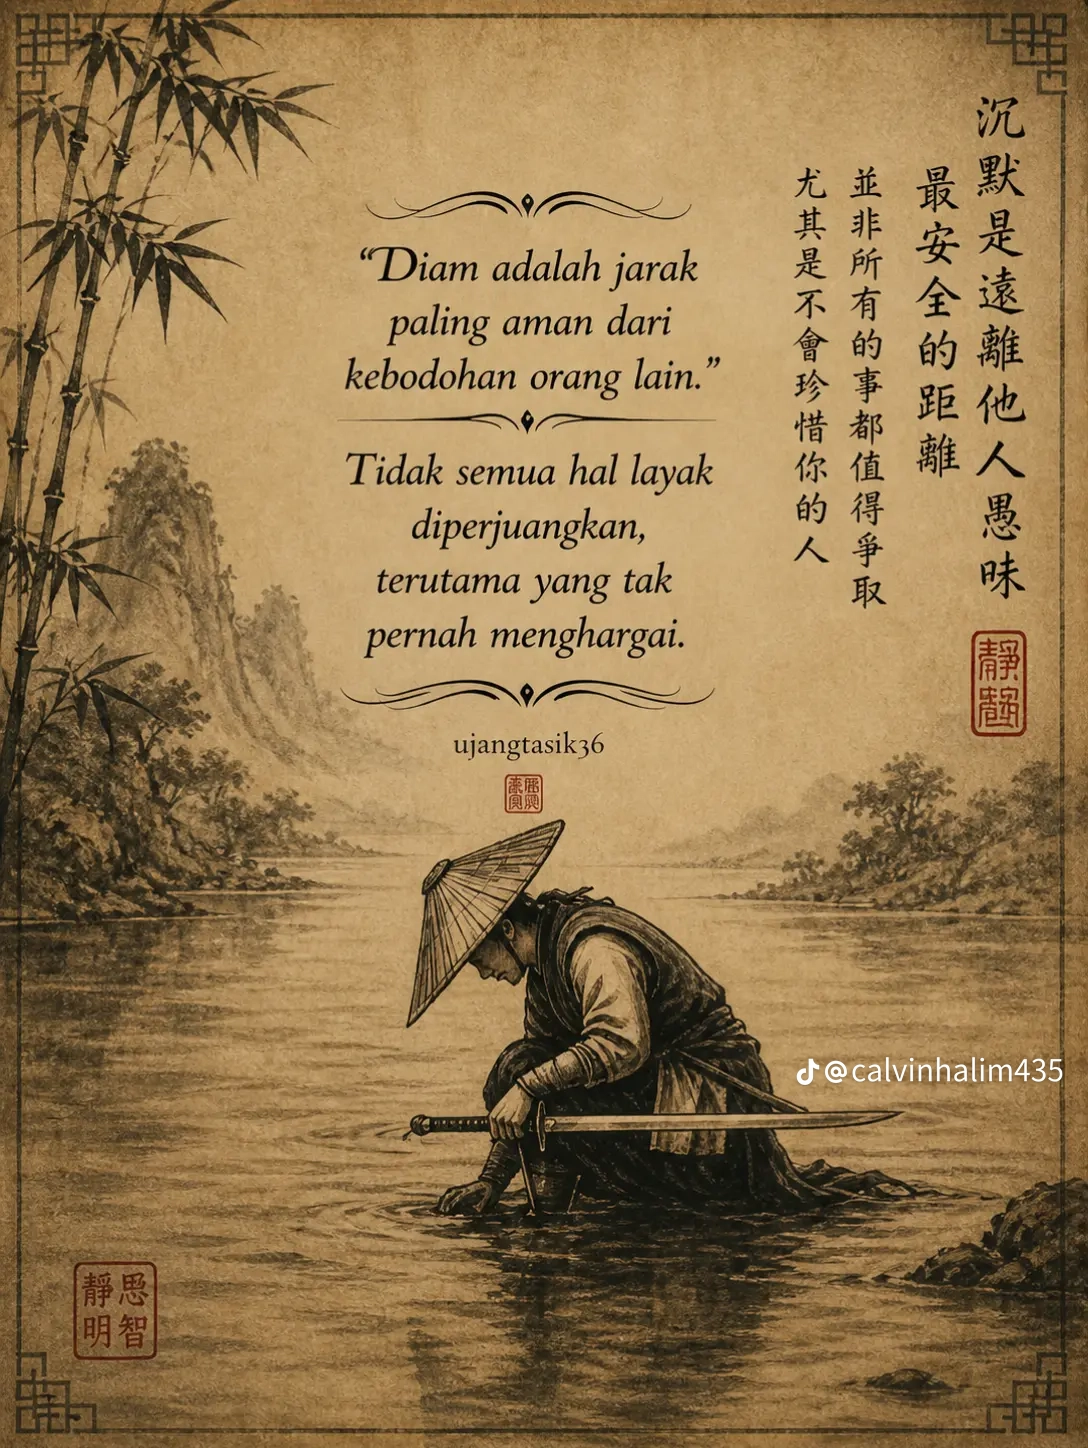 “Diam adalah jarak
paling aman dari
kebodohan orang lain.”
Tidak semua hal layak
diperjuangkan,
terutama yang tak
pernah menghargai.
ujangtasik36
沉默是遠離他人愚昧
最安全的距離
並非所有的事都值得爭取
尤其是不會珍惜你的人
@calvinhalim435
靜思
明智